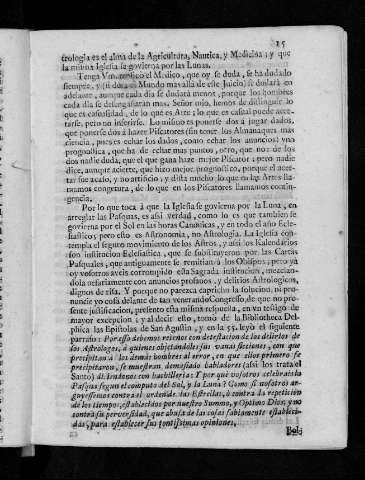 15
trologia es el alma de la Agricultura, Nautica, y Medicina; y que
la misma Iglesia se govierna por las Lunas.
Tenga Vm. replicò el Medico, que oy se duda, se ha dudado
siempre, y si dura el Mundo mas allà de este Juicio, se dudarà en
adelante, aunque cada dia se dudarà menos, porque los hombres
cada dia se desengañaràn mas. Señor mio, hemos de distinguir lo
que es casualidad, de lo que es Arte; lo que es casual puede acer-
tarse, pero no inferirse. Lo mismo es ponerse dos à jugar dados,
que ponerse dos à hazer Piscatores (sin tener los Almanaques mas
ciencia, pues es echar los dados, como echar los anuncios) y no
prognostica, que ha de echar mas puntos, otro, que no: de los
dos nadie duda, que el que gana haze mejor Piscator; pero nadie
dice, aunque acierte, que hizo mejor prognostico, porque el acer-
tar fue acaso, y no artificio; y dista mucho lo que en las Artes lla-
mamos congetura, de lo que en los Piscatores llamamos contin-
gencia.
Por lo que toca à que la Iglesia se govierna por la Luna, en
arreglar las Pasquas, es assi verdad, como lo es que tambien se
govierna por el Sol en las horas Canonicas, y en todo el año Ecle-
siastico; pero esto es Astronomia, no Astrologia. La Iglesia con-
templa el seguro movimiento de los Astros, y assi los Kalendarios
son institucion Eclesiastica, que se substituyeron por las Cartas
Pasquales, que antiguamente se remitian à los Obispos; pero ya
oy vosotros aveis corrompido essa Sagrada institucion, mezclan-
dola nefariamente con anuncios profanos, y delirios Astrologicos,
dignos de risa. Y porque no parezca capricho la reducino, ni pro-
nuncie yo cosa delante de tan venerando Congresso, de que no pre-
sente justificacion, presento esta misma respuesta, en vn testigo de
mayor excepcion; y al decir esto, tomò de la Bibliotheca Del-
phica las Epistolas de San Agustin, y en la 55. leyò el siguiente
parrafo: Por esso debemos reirnos con detestacion de los delirios de
los Astrologos, à quienes objetandoles sus vanas ficciones, con que
precipitan à los demàs hombres al error, en que ellos primero se
precipitaron, se muestran demasiado habladores (assi los trata el
Santo) diziendonos con bachilleria: Y por què vosotros celebrais la
Pasqua segun el computo del Sol, y la Luna? Como si nosotros ar-
guyessemos contra el orden de las Estrellas, ò contra la repeticion
de los tiempos, establecidos por nuestro Summo, y Optimo Dios, y no
contra su perversidad, que abusa de las cosas sabiamente estableci-
das, para establecer sus tontissimas opiniones.